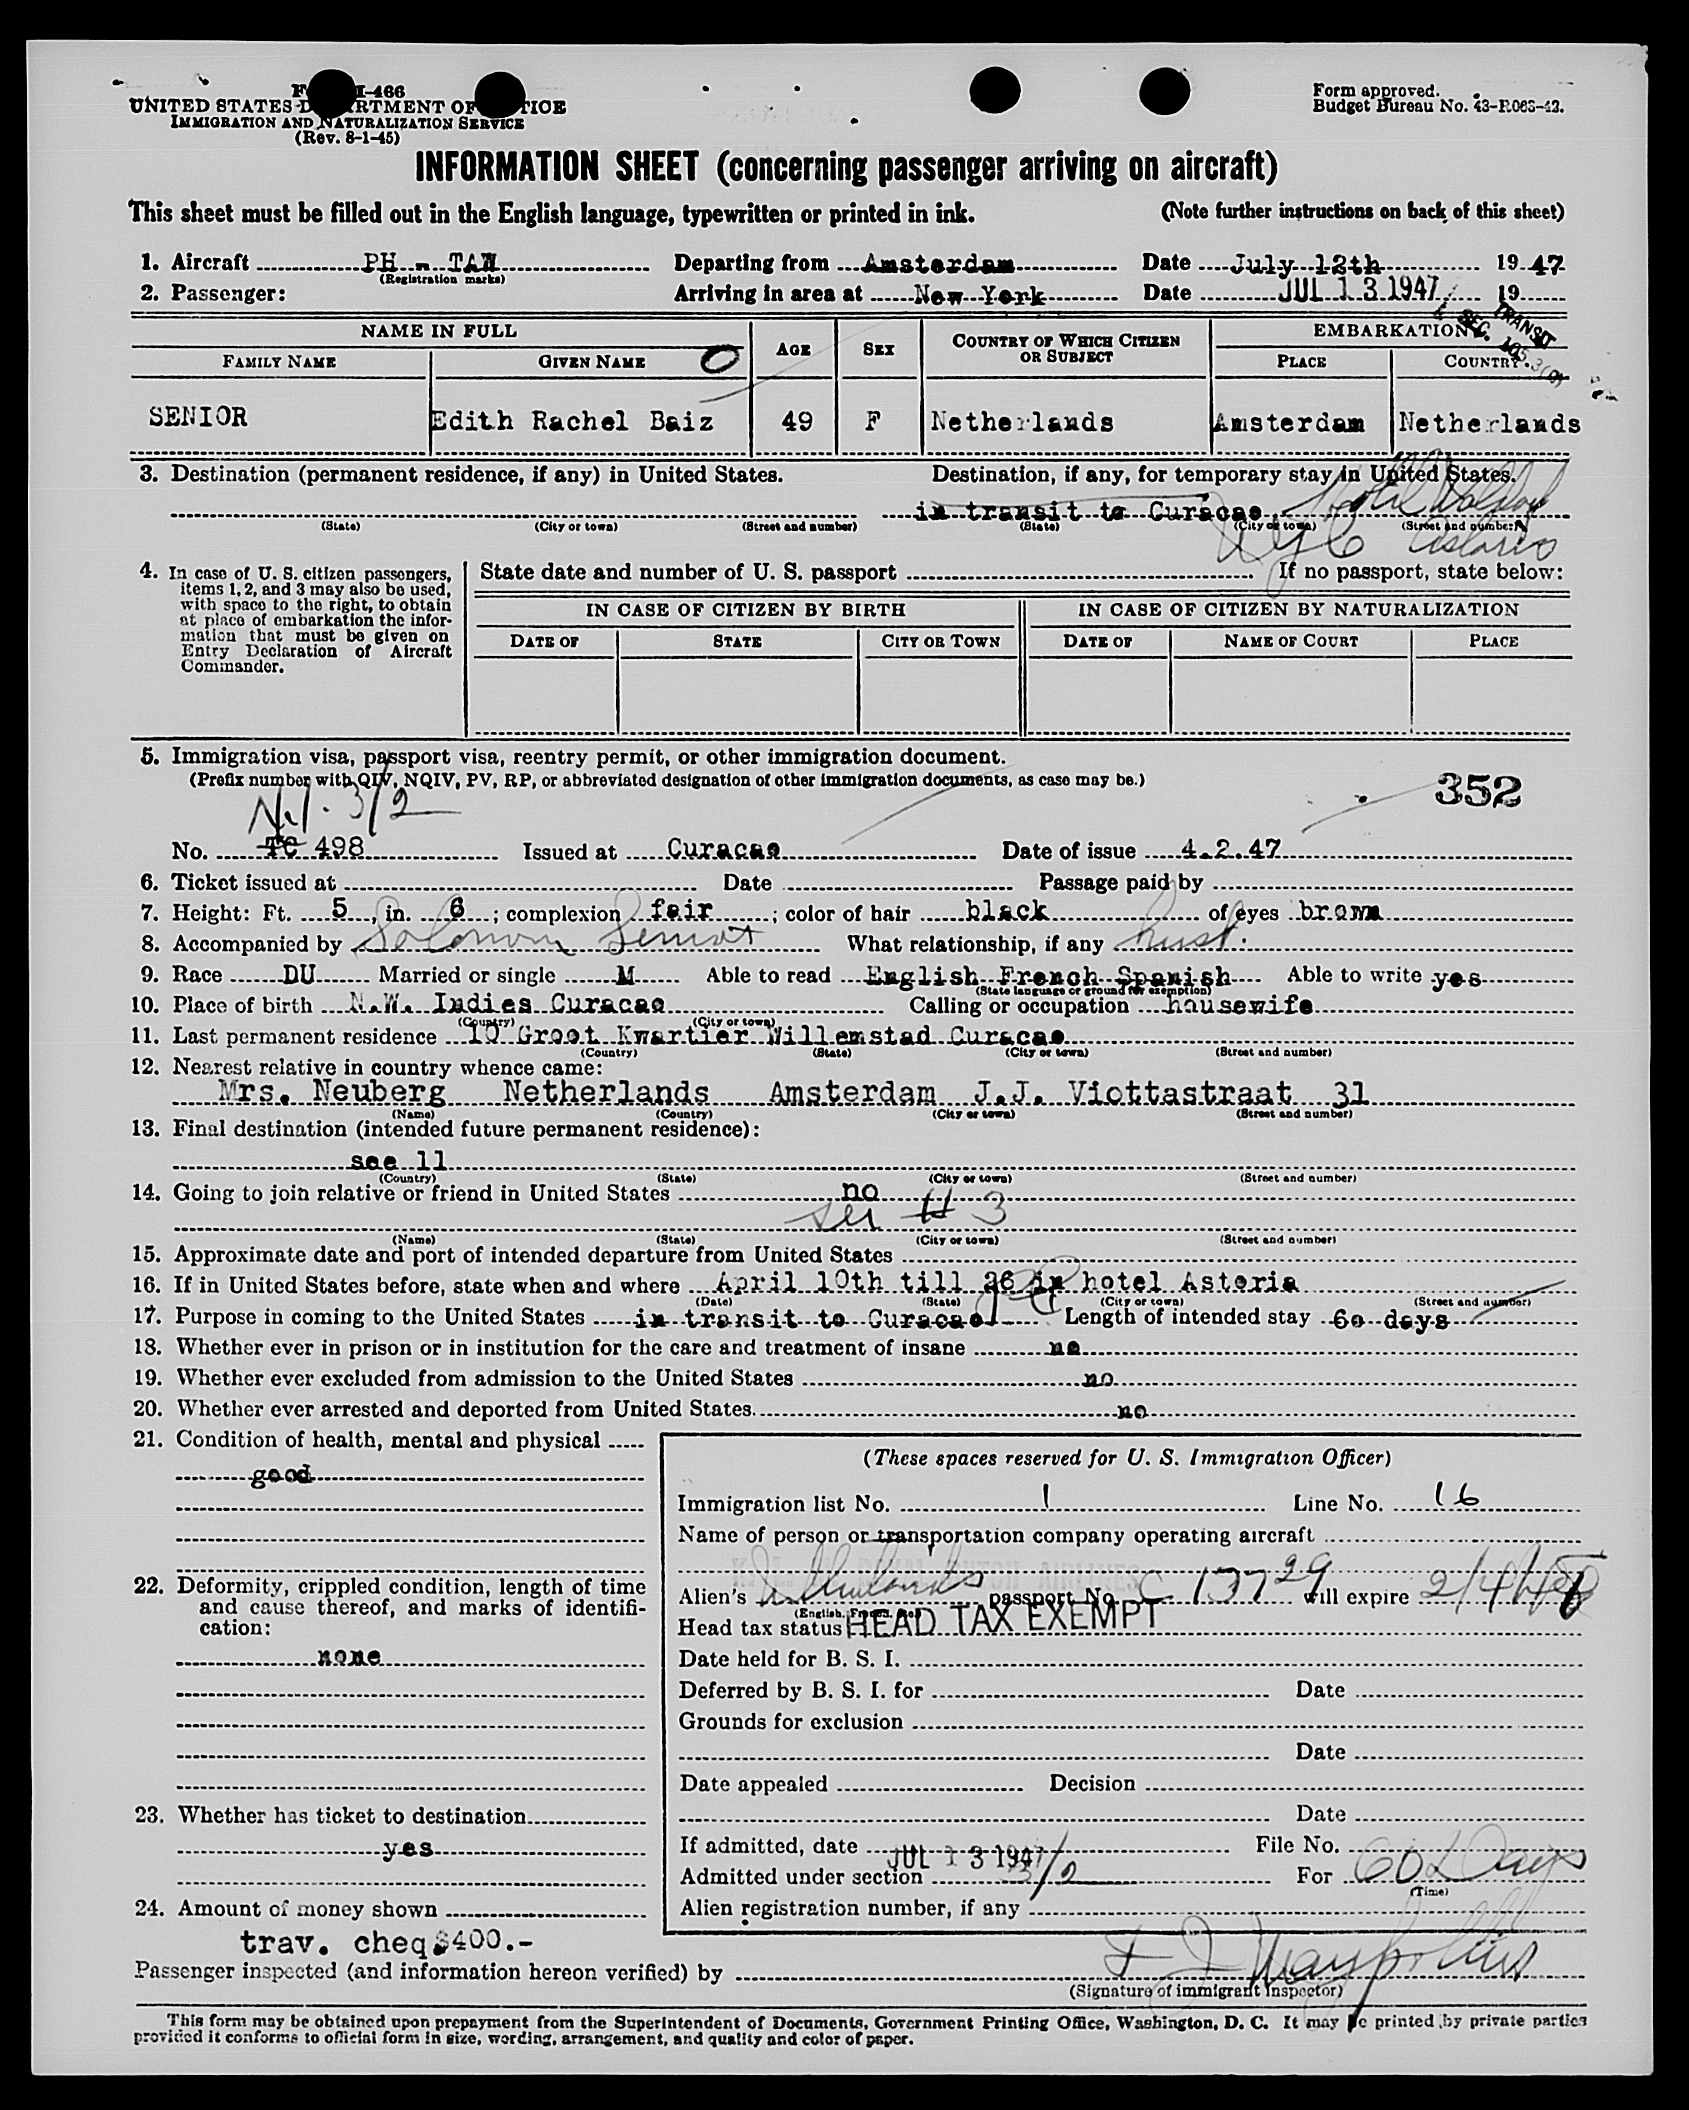 I-466
UNITED STATES DEPARTMENT OF JUSTICE
IMMIGRATION AND NATURALIZATION SERVICE
(Rev. 8-1-45)
Form approved.
Budget Bureau No. 43-R063-42.
INFORMATION SHEET (concerning passenger arriving on aircraft)
This sheet must be filled out in the English language, typewritten or printed in ink. (Note further instructions on back of this sheet)
1. Aircraft PH - TAW Departing from Amsterdam Date July 12th 19 47
(Registration marks)
2. Passenger: Arriving in area at New York Date JUL 13 1947 19
TRANSIT
SEC. 105.3(a)
NAME IN FULL AGE SEX COUNTRY OF WHICH CITIZEN OR SUBJECT EMBARKATION
FAMILY NAME GIVEN NAME PLACE COUNTRY
SENIOR Edith Rachel Baiz 49 F Netherlands Amsterdam Netherlands
3. Destination (permanent residence, if any) in United States. Destination, if any, for temporary stay in United States.
in transit to Curaçao Hotel Waldorf
(State) (City or town) (Street and number) (State) (City or town) (Street and number)
NYC Astoria
4. In case of U. S. citizen passengers, items 1, 2, and 3 may also be used, with space to the right, to obtain at place of embarkation the information that must be given on Entry Declaration of Aircraft Commander.
State date and number of U. S. passport If no passport, state below:
IN CASE OF CITIZEN BY BIRTH IN CASE OF CITIZEN BY NATURALIZATION
DATE OF STATE CITY OR TOWN DATE OF NAME OF COURT PLACE
5. Immigration visa, passport visa, reentry permit, or other immigration document.
(Prefix number with QIV, NQIV, PV, RP, or abbreviated designation of other immigration documents, as case may be.) 352
3/2
No. TC 498 Issued at Curacao Date of issue 4.2.47
6. Ticket issued at Date Passage paid by
7. Height: Ft. 5, in. 6; complexion fair; color of hair black of eyes brown
8. Accompanied by Solomon Senior What relationship, if any husb.
9. Race DU Married or single M Able to read English French Spanish Able to write yes
(State language or ground for exemption)
10. Place of birth N.W. Indies Curacao Calling or occupation housewife
(Country) (City or town)
11. Last permanent residence 10 Groot Kwartier Willemstad Curacao
(Country) (State) (City or town) (Street and number)
12. Nearest relative in country whence came:
Mrs. Neuberg Netherlands Amsterdam J.J. Viottastraat 31
(Name) (Country) (City or town) (Street and number)
13. Final destination (intended future permanent residence):
see 11
(Country) (State) (City or town) (Street and number)
14. Going to join relative or friend in United States no
see # 3
(Name) (State) (City or town) (Street and number)
15. Approximate date and port of intended departure from United States
16. If in United States before, state when and where April 10th till 26 in hotel Astoria
(Date) (State) (City or town) (Street and number)
17. Purpose in coming to the United States in transit to Curacao Length of intended stay 60 days
18. Whether ever in prison or in institution for the care and treatment of insane no
19. Whether ever excluded from admission to the United States no
20. Whether ever arrested and deported from United States. no
21. Condition of health, mental and physical
good
22. Deformity, crippled condition, length of time and cause thereof, and marks of identification:
none
23. Whether has ticket to destination
yes
24. Amount of money shown
trav. cheq $400.-
(These spaces reserved for U. S. Immigration Officer)
Immigration list No. 1 Line No. 16
Name of person or transportation company operating aircraft
ROYAL DUTCH AIRLINES
Alien's Netherlands passport No. C 13729 will expire
(English, French, etc.)
Head tax status HEAD TAX EXEMPT
Date held for B. S. I.
Deferred by B. S. I. for Date
Grounds for exclusion
Date
Date appealed Decision
Date
If admitted, date JUL 13 1947 File No.
Admitted under section 3/2 For 60 Days
(Time)
Alien registration number, if any
Passenger inspected (and information hereon verified) by
(Signature of immigrant inspector)
This form may be obtained upon prepayment from the Superintendent of Documents, Government Printing Office, Washington, D. C. It may be printed by private parties
provided it conforms to official form in size, wording, arrangement, and quality and color of paper.